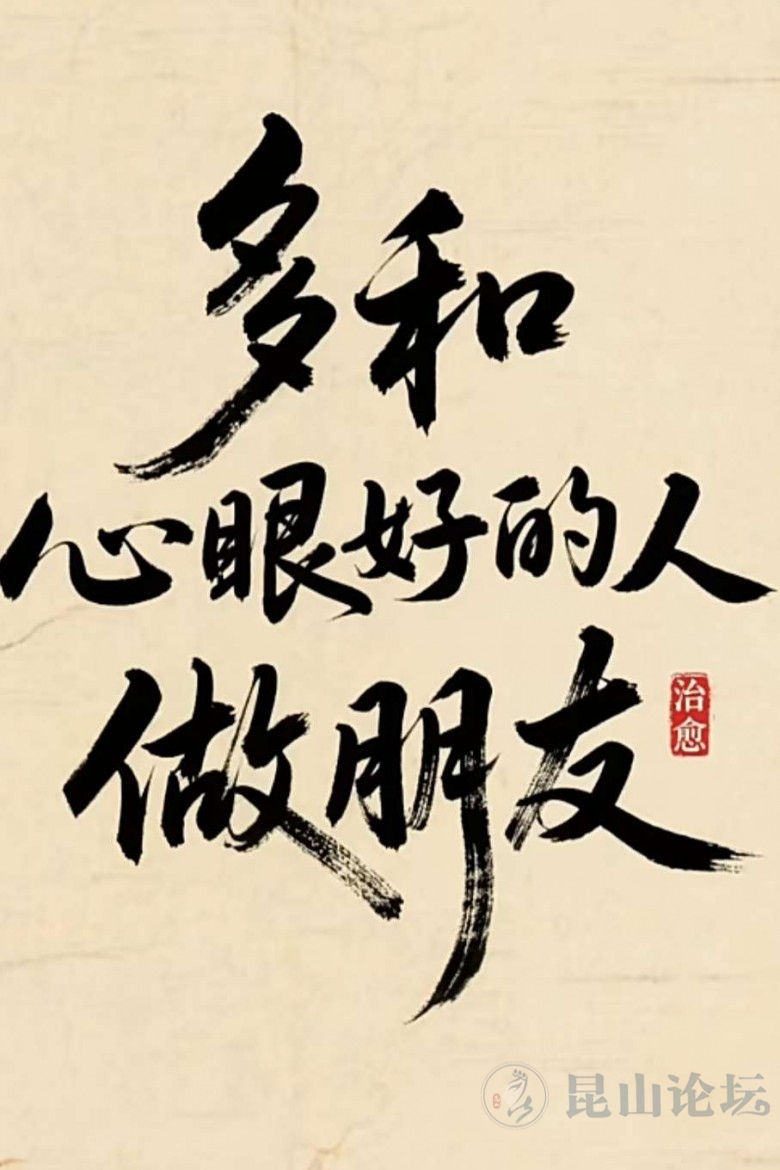 多和
心眼好的人
做朋友
治愈
昆山论坛